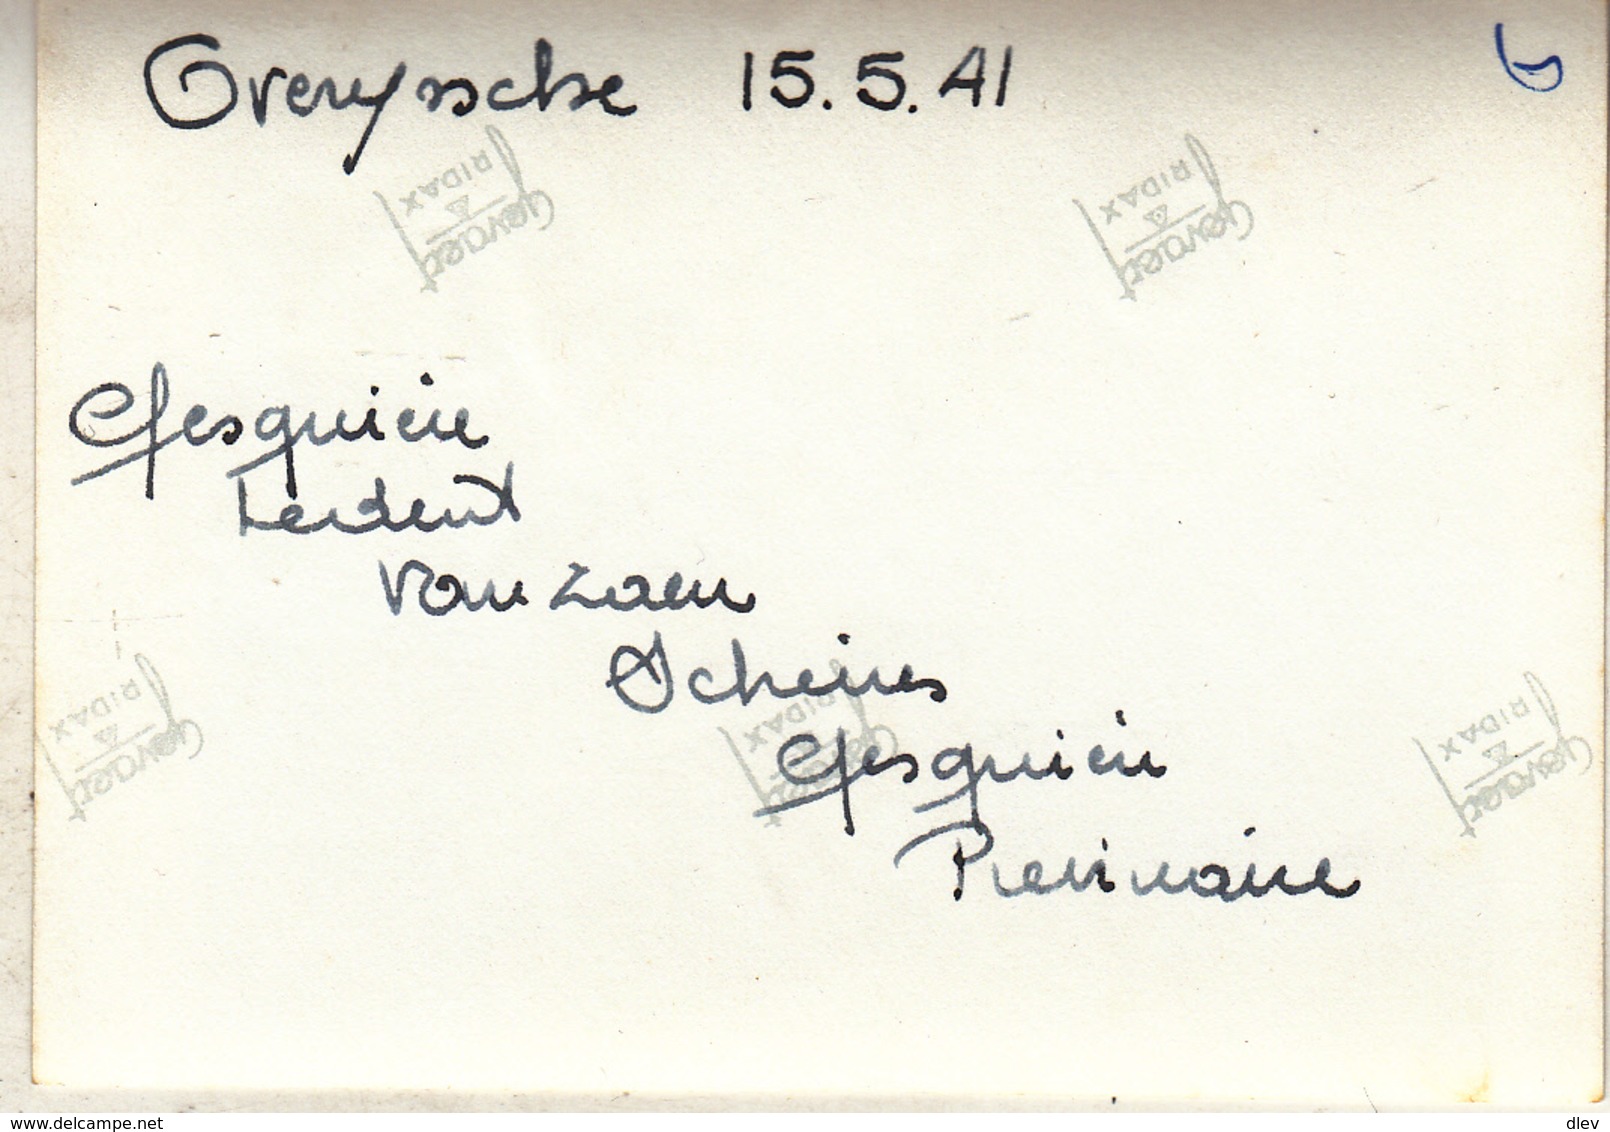 Overyssche 15.5.41 6
Gevaert
RIDAX
Gevaert
RIDAX
Ghesquière
Lerdent
Van Zaen
Scheires
Gevaert
RIDAX
Gevaert
RIDAX
Gevaert
RIDAX
Ghesquière
www.delcampe.net
dlev